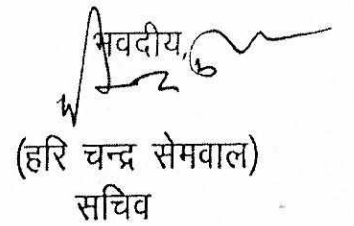 भवदीय,
(हरि चन्द्र सेमवाल)
सचिव